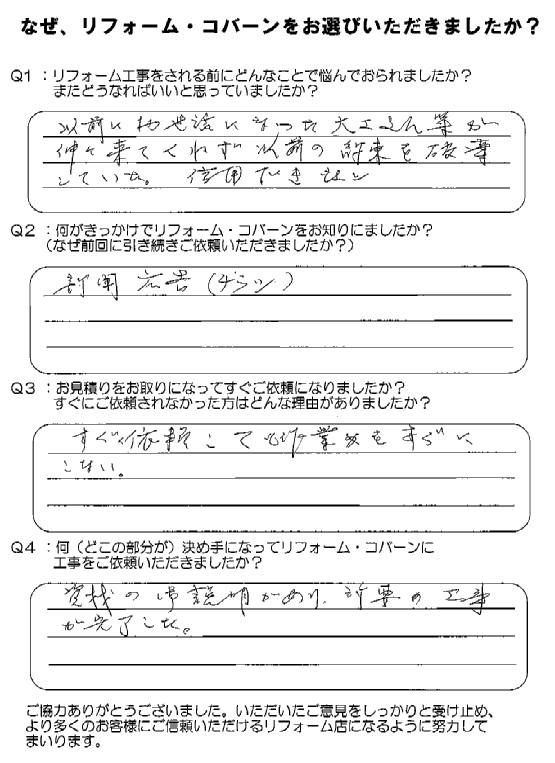 なぜ、リフォーム・コバーンをお選びいただきましたか？
Q1 ：リフォーム工事をされる前にどんなことで悩んでおられましたか？
またどうなればいいと思っていましたか？
以前にお世話になった大工さん等が
仲々来てくれず以前の約束を破棄
していた。信用できない
Q2 ：何がきっかけでリフォーム・コバーンをお知りにましたか？
（なぜ前回に引き続きご依頼いただきましたか？）
新聞広告（チラシ）
Q3 ：お見積りをお取りになってすぐご依頼になりましたか？
すぐにご依頼されなかった方はどんな理由がありましたか？
すぐ依頼しても作業をすぐに
しない。
Q4 ：何（どこの部分が）決め手になってリフォーム・コバーンに
工事をご依頼いただきましたか？
の御説明があり、の工事
が完了した。
ご協力ありがとうございました。いただいたご意見をしっかりと受け止め、
より多くのお客様にご信頼いただけるリフォーム店になるように努力して
まいります。